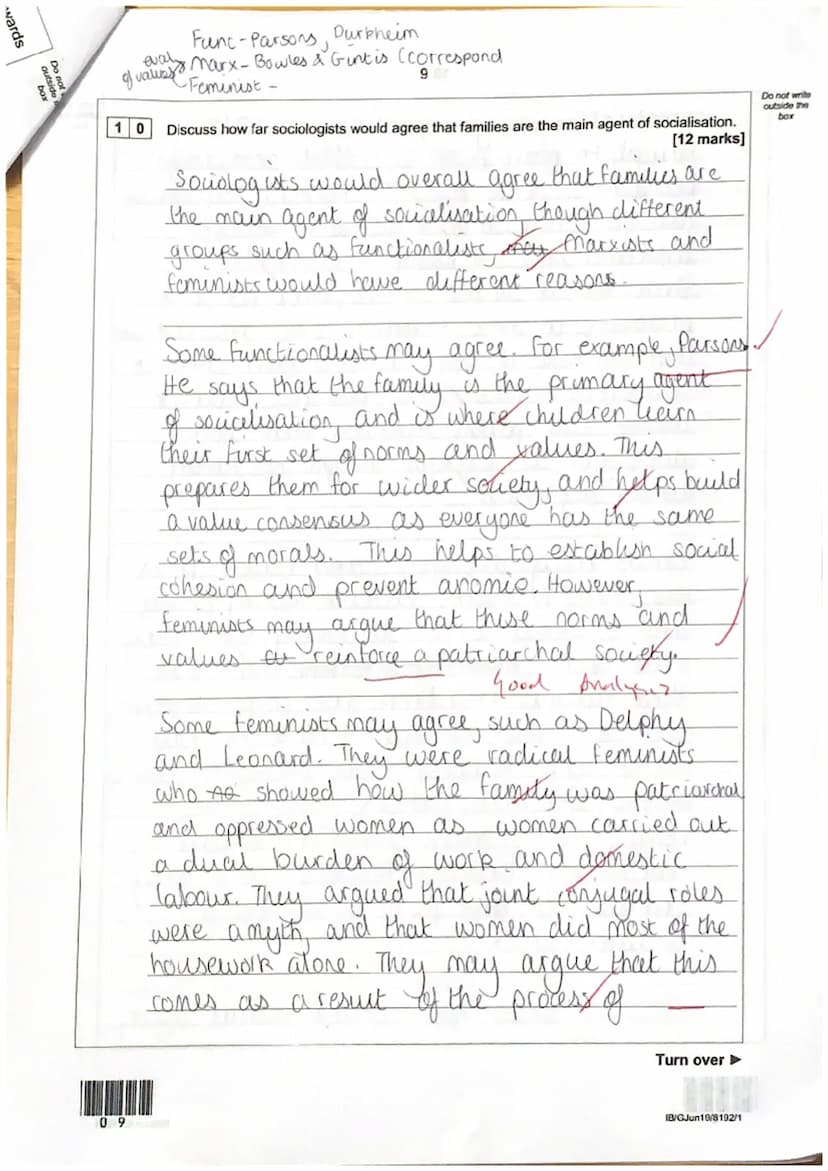 wards
Do not
outside the
box
Func - Parsons, Durkheim
eval
of values
Marx - Bowles & Gintis (correspond
Feminist -
9
Do not write
outside the
box
1 0 Discuss how far sociologists would agree that families are the main agent of socialisation.
[12 marks]
Sociologists would overall agree that families are
the main agent of socialisation, though different
groups such as functionalists, Marxists and
feminists would have different reasons.
Some functionalists may agree. For example, Parsons.
He says that the family is the primary agent
of socialisation, and is where children learn
their first set of norms and values. This
prepares them for wider society, and helps build
a value consensus as everyone has the same
sets of morals. This helps to establish social
cohesion and prevent anomie. However,
feminists may argue that these norms and
values reinforce a patriarchal society.
Good Analysis
Some feminists may agree, such as Delphy
and Leonard. They were radical feminists
who showed how the family was patriarchal
and oppressed women as women carried out
a dual burden of work and domestic
labour. They argued that joint conjugal roles
were a myth, and that women did most of the
housework alone. They may argue that this
comes as a result of the process of
Turn over ►
0 9
IB/G/Jun19/8192/1